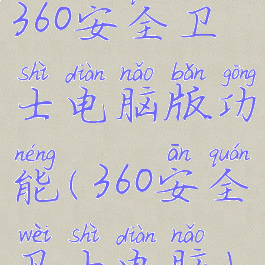 360安全卫
shì diàn nǎo bǎn gōng
士电脑版功
néng ān quán
能(360安全
wèi shì diàn nǎo
卫士电脑)